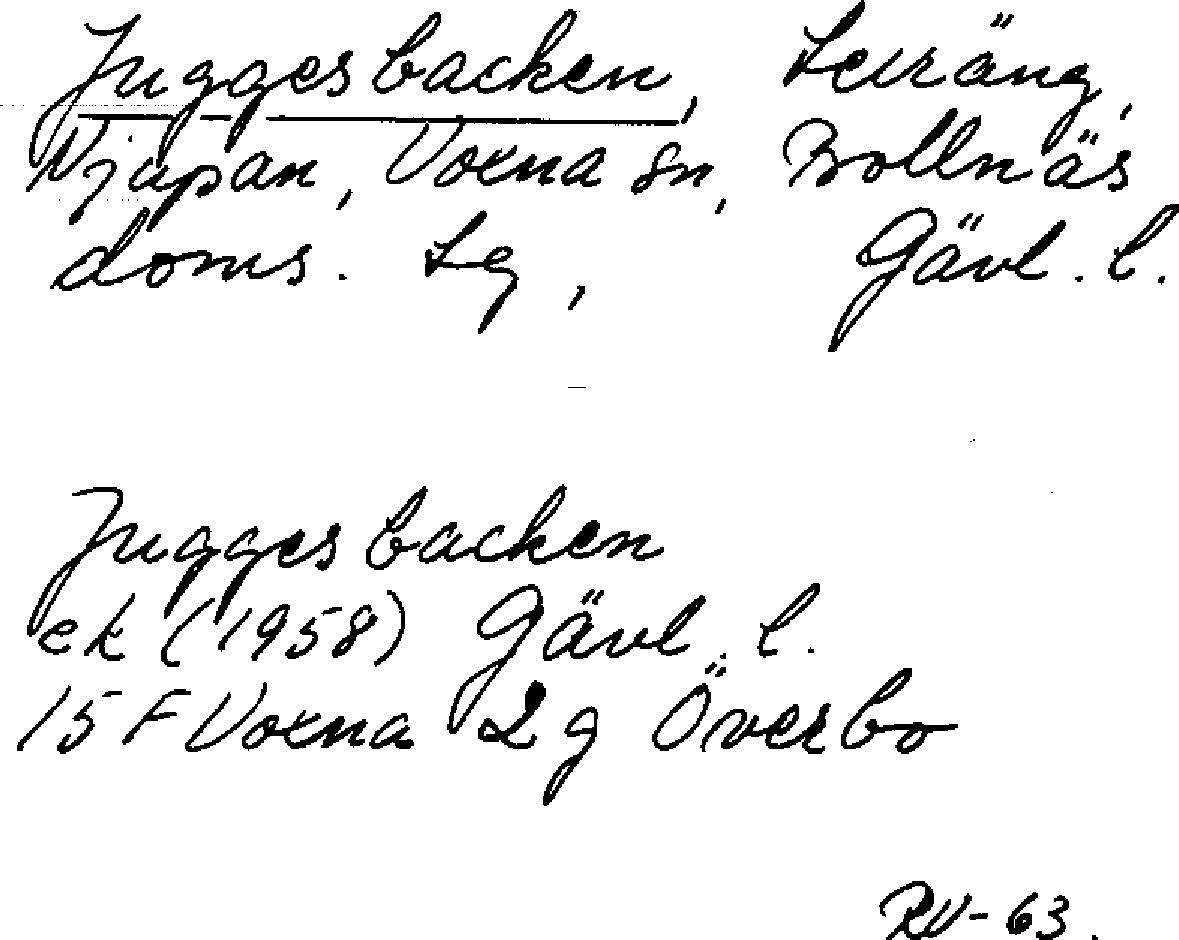 Juggesbacken, Leiräng,
Njupan, Voxna sn, Bollnäs
doms. Lg, Gävl. l.
Juggesbacken
ek (1958) Gävl. l.
15 F Voxna 2 g Överbo
RW-63.